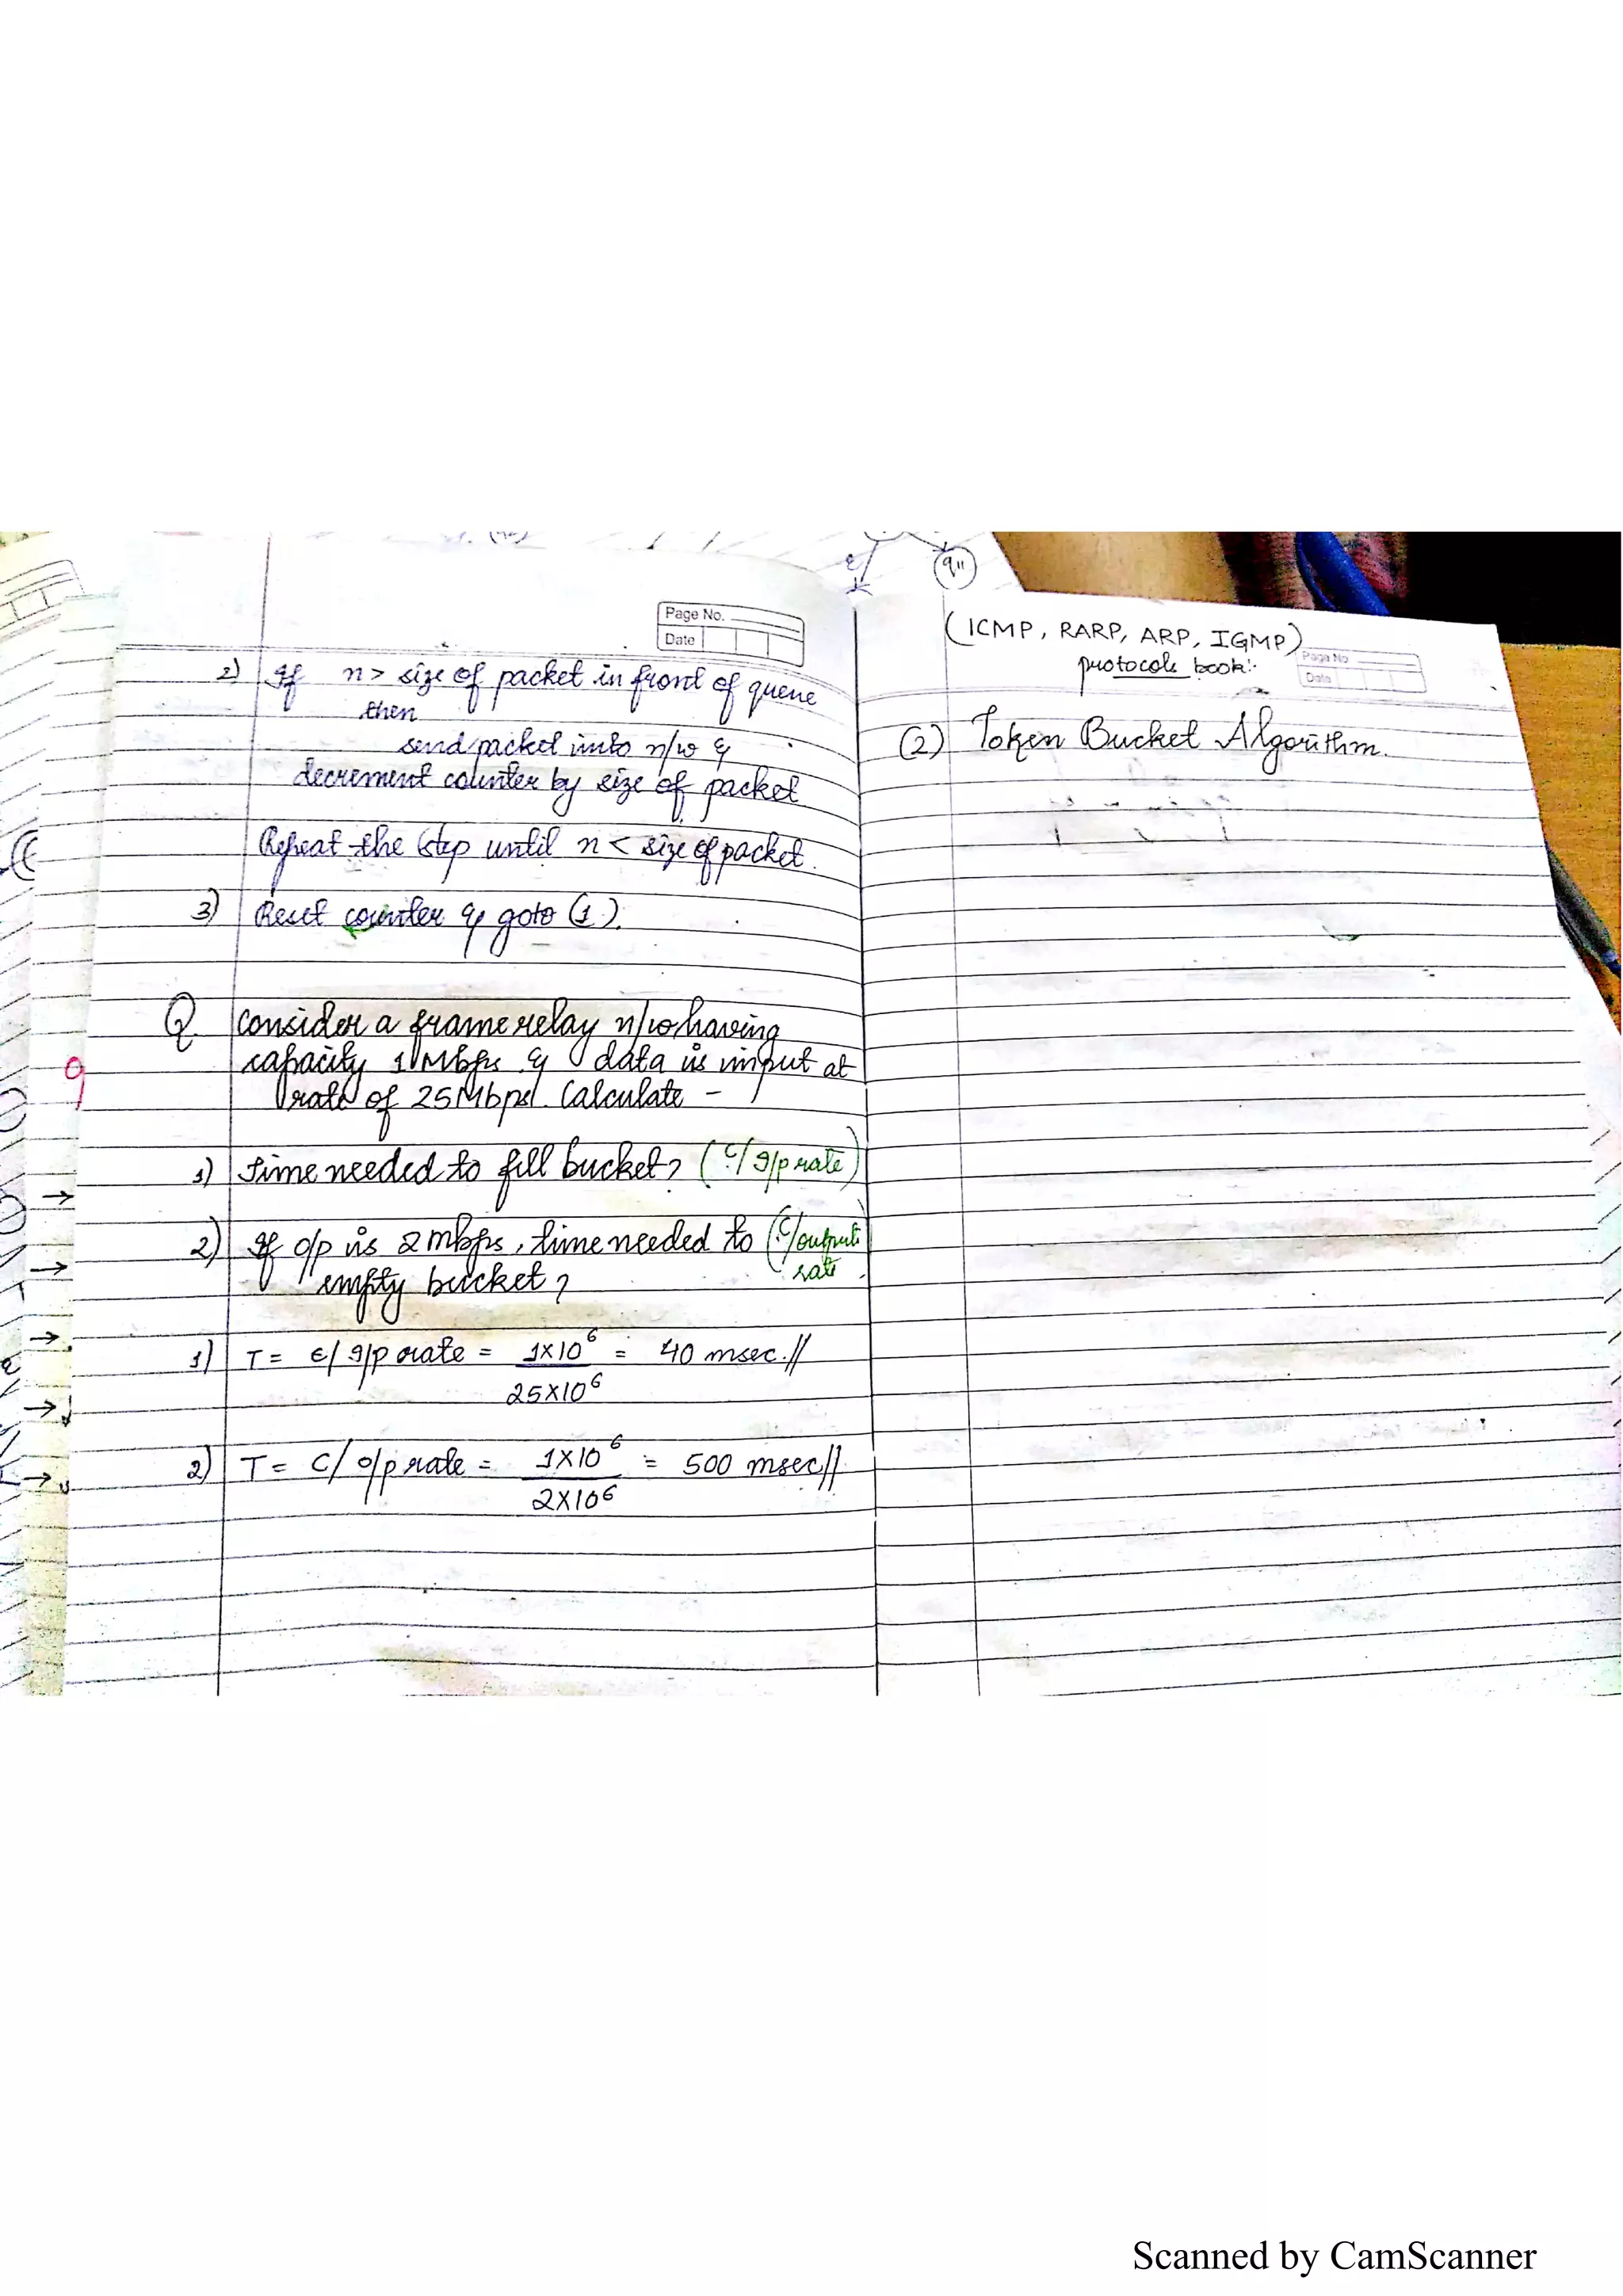 Page No.
Date
2) If n > size of packet in front of queue
then
send packet into n/w &
decrement counter by size of packet
Repeat the step until n < size of packet.
3) Reset counter & goto (1).
Q. Consider a frame relay n/w having
capacity 1 Mbps & data is input at
rate of 25Mbps. Calculate -
9
1) Time needed to fill bucket? (C/I/p rate)
2) If o/p is 2 mbps, time needed to (C/output
empty bucket? rate
1) T = C/I/p rate = 1X10^6 = 40 msec.//
25X10^6
2) T = C/o/p rate = 1X10^6 = 500 msec//
2X10^6
q11
(ICMP, RARP, ARP, IGMP)
protocols book:-
Page No
Date
(2) Token Bucket Algorithm.
Scanned by CamScanner